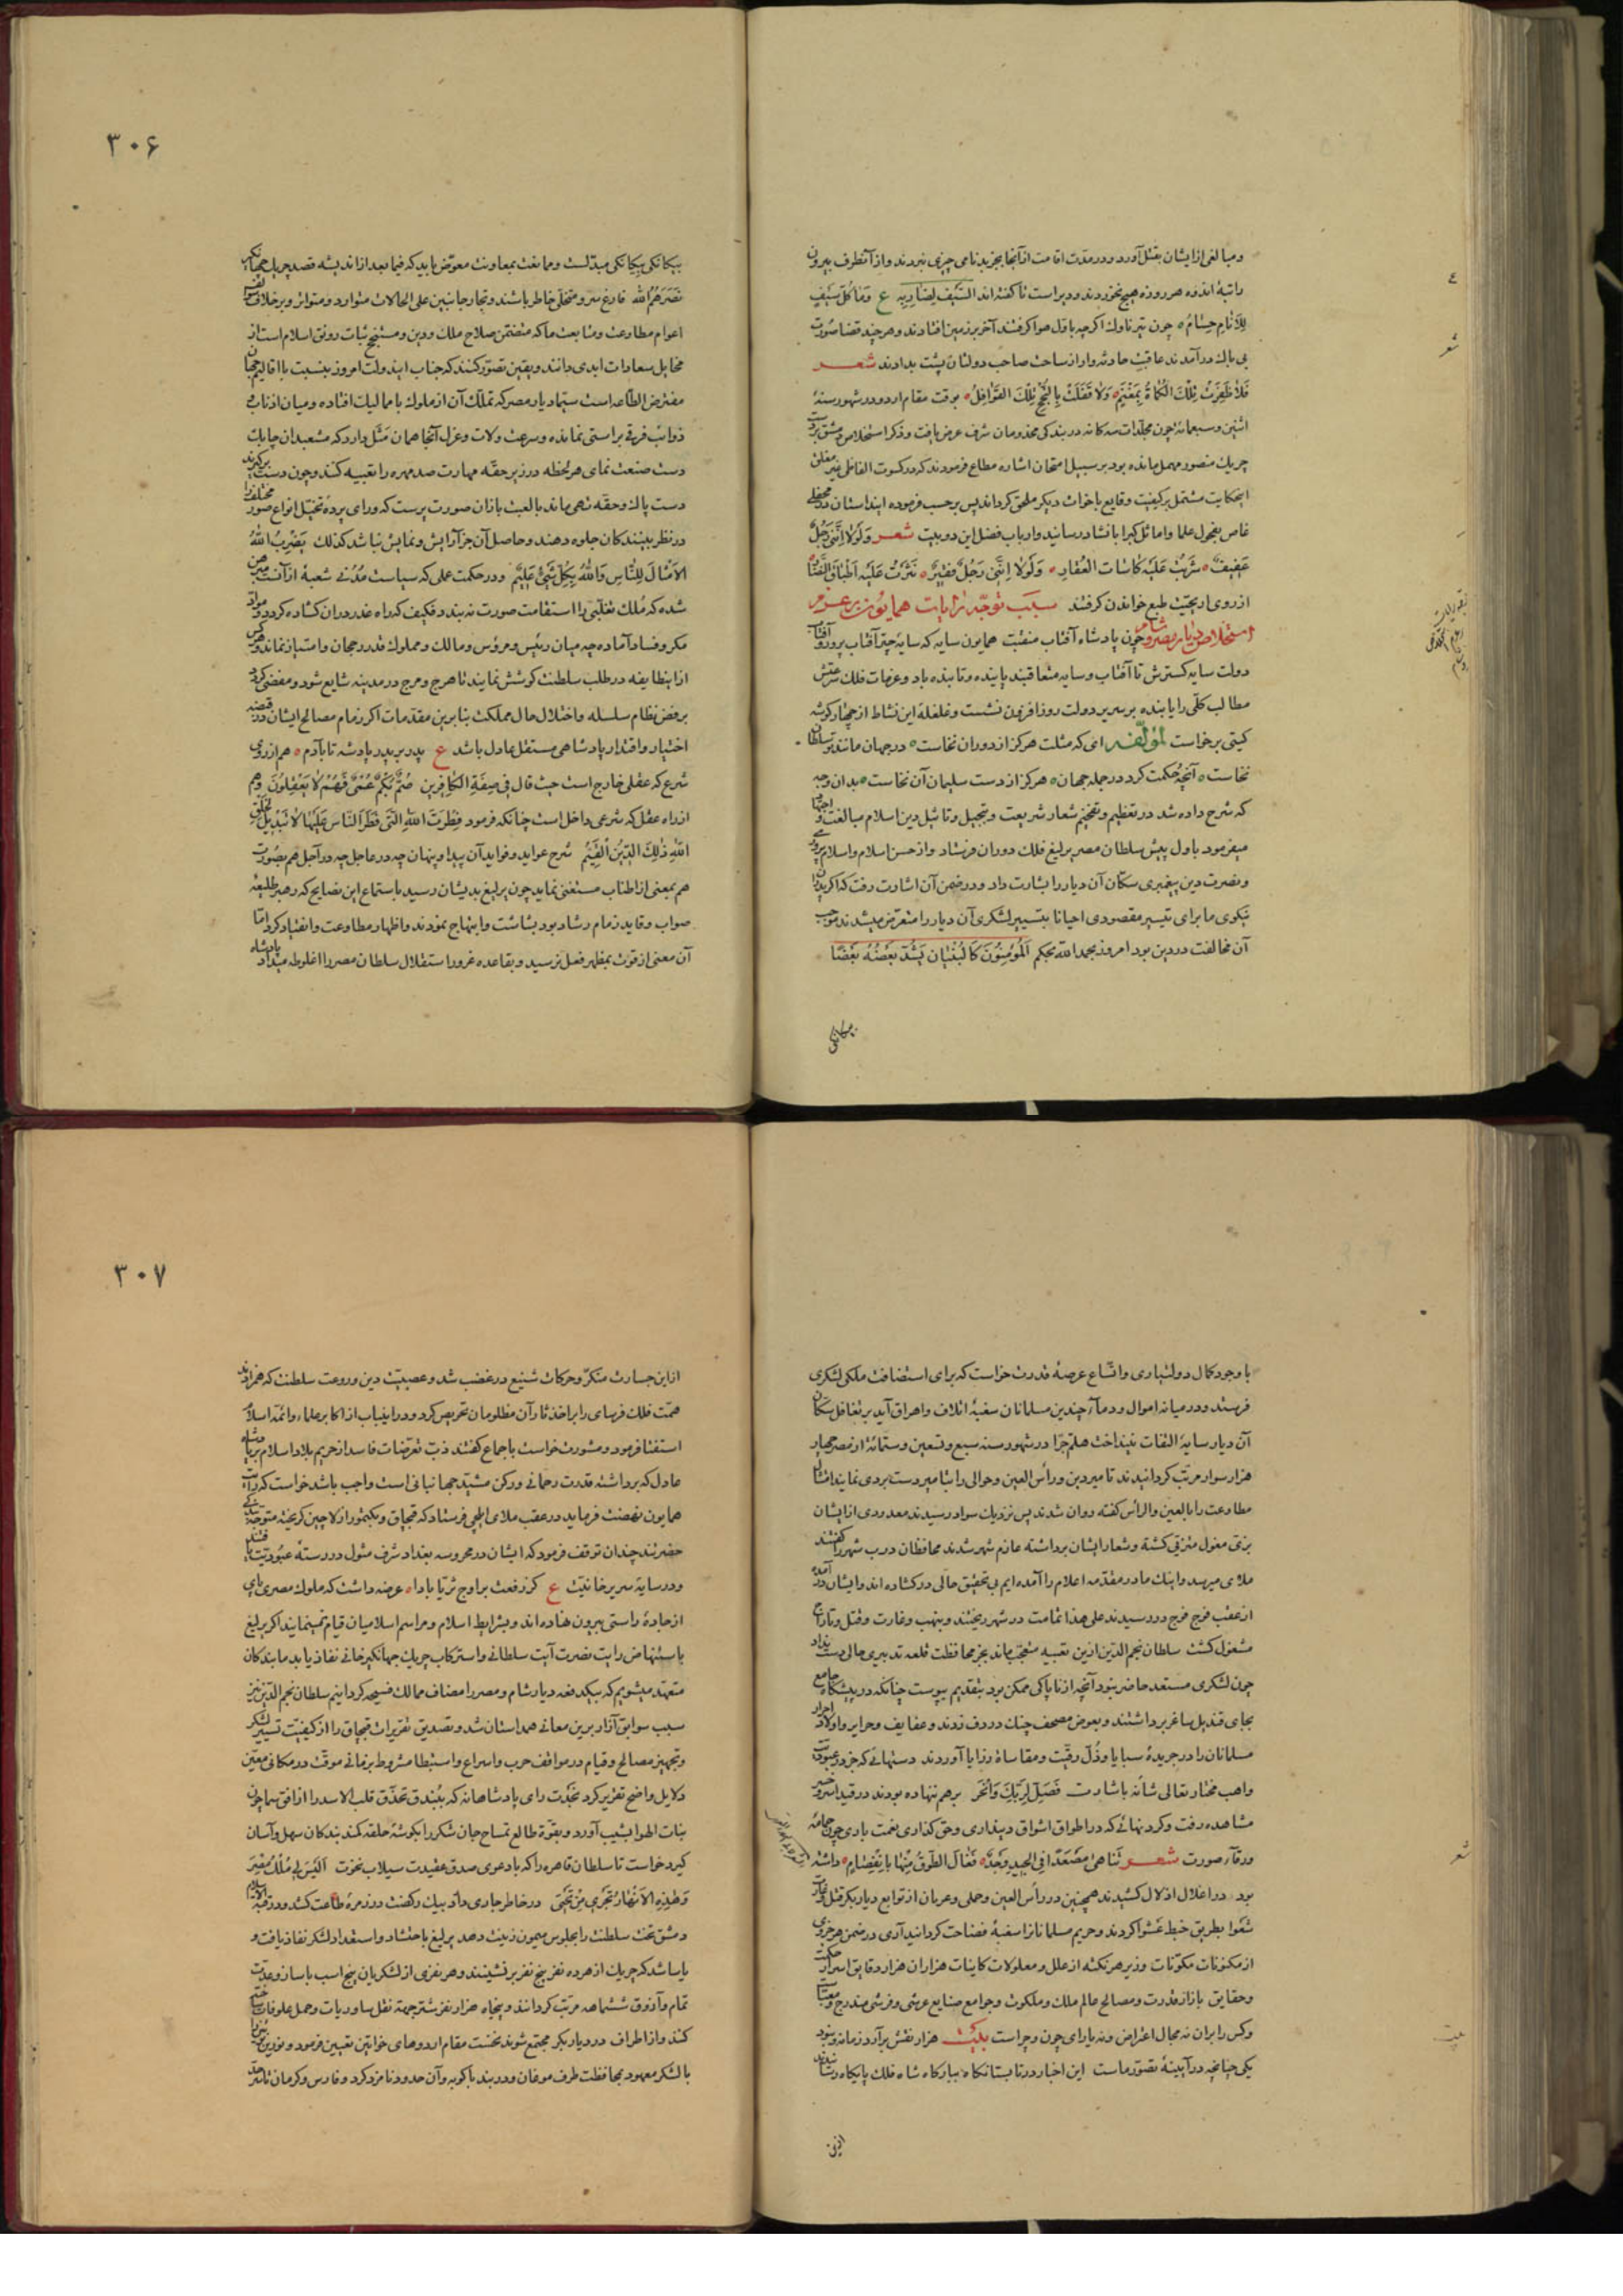 و مبالغی از ایشان بقتل آورد و در مدّت اقامت از آنجا بجز بدنامی چیزی نبردند و از آنطرف بیرون
راتبهٔ اندوه هر روزه هیچ نخوردند و دیر است تا گفته‌اند السَّیفُ لِضارِبِهِ ع وَمَا کُلُّ سَیْفٍ
لِلأَنامِ حِسَامُ چون تیر ناوک اگرچه باوّل هوا گرفتند آخر بر زمین افتادند و هرچند قضا صورت
بی باک در آمدند عاقبت حادثه وار از ساحت صاحب دولتان پشت بدادند شعر
فَلَا ظَفِرَتْ تِلْكَ الْكُمَاةُ بِمَغْنَمٍ وَلَا قَفَلَتْ بِالنُّجْحِ تِلْكَ القَوَافِلُ بوقت مقام اردو در شهور سنهٔ
اثنین و سبعمائه چون مجلّدات سه کانه در بندکی مخدومان شرف عرض یافت و ذکر استخلاص دمشق
چریک منصور مهمل مانده بود بر سبیل امتحان اشاره مطاع فرمودند که در کسوت الفاظ
اینحکایت مشتمل بر کیفیت وقایع باخوات دیکر ملحق کرداند پس بر حسب فرموده این داستان در محفلی
غاص بفحول علما و اماثل کبرا بانشاد رسانید و ارباب فضل این دو بیت شعر وَلَوْلَا اِنَّنِی رَجُلٌ
عَفِیفٌ شَرِبْتُ عَلَیْهِ کَاسَاتِ العُقَارِ وَلَوْلَا اِنَّنِی رَجُلٌ فَقِیرٌ نَثَرْتُ عَلَیْهِ اَطْبَاقَ
از روی اریحیّت طبع خواندن کرفتند سبب توجّه رایات همایون بر عزم
استخلاص دیار مصر و شام چون پادشاه آفتاب منقبت همایون سایه که سایهٔ چتر آفتاب پرور و آفتاب
دولت سایه کسترش تا آفتاب و سایه متعاقبند پاینده و تابنده باد و عزمات فلک سرعتش
مطالب کلّی را یابنده بر سریر دولت روز افزون نشست و غلغلهٔ این نشاط از چهار کوشه
کیتی برخاست لمؤلّفه ای که مثلت هرکز از دوران نخاست در جهان مانند تو سلطان
نخاست آنچه حکمت کرد در جمله جهان هرکز از دست سلیمان آن نخاست بدان وجه
که شرح داده شد در تعظیم و تفخیم شعار شریعت و تبجیل و تاثیل دین اسلام مبالغت و اجتهاد
میفرمود باول پیش سلطان مصر یرلیغ فلک دوران فرستاد و از حسن اسلام و اسلام پروری
و نصرت دین پیغمبری سکّان آن دیار را بشارت داد و در ضمن آن اشارت رفت که اکر پدران
نیکوی ما برای تیسیر مقصودی احیانا بتسییر لشکری آن دیار را متعرّض میشدند موجب
آن مخالفت در دین بود امروز بحمد الله بحکم اَلْمُؤمِنُونَ کَالْبُنْیَانِ یَشُدُّ بَعْضُهُ بَعْضًا
٣٠۶
بیکانکی بیکانکی مبدّلست و ممانعت بمعاونت معوّض باید که فیما بعد از اندیشه قصد چریک جهانکیر
نَصَرَهُمُ الله فارغ سر و متخلّی خاطر باشند و تجار جانبین علی الحالات متوارد و متواتر و بر خلاف
اعوام مطاوعت و متابعت ما که متضمّن صلاح ملک و دین و مستنتج ثبات رونق اسلام است از
مخایل سعادات ابدی دانند و یقین تصوّر کنند که جناب ایندولت امروز بنسبت با اقالیم جهان
مفترض الطّاعه است سیّما دیار مصر که تملّک آن از ملوک با ممالیک افتاده و میان اذناب و
ذوائب فرقی براستی نمانده و سرعت ولات و عزل آنجا همان مَثَل دارد که مشعبدان چابک
دست صنعت نمای هر لحظه در زیر حقّه مهارت صد مهره را تعبیه کنند و چون دست برکیرند
دست پاک و حقّه تهی ماند بالعبت بازان صورت پرست که ورای پردهٔ تخیّل انواع صور مختلف را
در نظر بینندکان جلوه دهند و حاصل آن جز آرایش و نمایش نباشد کذلک یَضْرِبُ اللهُ
الاَمْثَالَ لِلنَّاسِ وَاللهُ بِکُلِّ شَیْءٍ عَلِیمٌ و در حکمت عملی که سیاست مُدُنی شعبهٔ از آنست مبرهن
شده که مُلک تغلّبی را استقامت صورت نه بندد فکیف که راه غدر در ان کشاده کردد و مواد
مکر و فساد آماده چه میان رئیس و مرؤس و مالک و مملوک قدر رجحان و امتیاز نماند و هرکس
از انطایفه در طلب سلطنت کوشش نمایند تا هرج و مرج در مدینه شایع شود و مفضی کردد
برفض نظام سلسله و اختلال حال مملکت بنابرین مقدّمات اکر زمام مصالح ایشان در قبضه
اختیار و اقتدار پادشاهی مستقل عادل باشد ع پدر بر پدر پادشه تا بآدم هم از روی
شرع که عقلی خارج است حیث قال فی صِفَةِ الکَافِرینَ صُمٌّ بُکْمٌ عُمْیٌ فَهُمْ لَا یَعْقِلُونَ و هم
از راه عقل که شرعی داخل است چنانکه فرمود فِطْرَتَ اللهِ الَّتِی فَطَرَ النَّاسَ عَلَیْهَا لَا تَبْدِیلَ لِخَلْقِ
اللهِ ذلِکَ الدِّینُ الْقَیِّمُ شرح عواید و فواید آن پیدا و پنهان چه در عاجل چه در آجل هم بصورت
هم بمعنی از اطناب مستغنی نماید چون یرلیغ بدیشان رسید باستماع این نصایح که رهبر طلیعه
صواب و قاید زمام رشاد بود بشاشت و ابتهاج نمودند و اظهار مطاوعت و انقیاد کرد امّا
آن معنی از قوّت بمظهر فعل نرسید و بقاعده غرور استقلال سلطان مصر را اغلوطه میداد پادشاه
با وجود کمال دولتیاری و اتّساع عرصهٔ قدرت خواست که برای استضافت ملکی لشکری
فرستد و در میانه اموال و دماء چندین مسلمانان سغبهٔ اتلاف و اهراق آید بر تغافل سکّان
آن دیار سایهٔ التفات نینداخت هلمّ جرّا در شهور سنه سبع و تسعین و ستمائة از مصر چهار
هزار سوار مرتّب کردانیدند تا میردین و رأس العین و حوالی را بتامیر دست بردی نمایند امتثال
مطاوعت را بالعین و الرأس کفته روان شدند پس نزدیک سواد رسیدند معدودی از ایشان
بزیّ مغول متزیّی کشته و شعار ایشان برداشته عازم شهر شدند محافظان درب شهر را کفتند
ملای میرسد و اینک ما در مقدّمه اعلام را آمده‌ایم بی تحقیق حالی در کشاده‌اند و ایشان در آمده
از عقب فوج فوج در رسیدند علی هذا تمامت در شهر ریختند و بنهب و غارت و قتل و تاراج
مشغول کشت سلطان نجم الدین ازین تعبیه متعجّب ماند بجز محافظت قلعه تدبیری حالی دست نداد
چون لشکری مستعد حاضر نبود آنچه از ناپاکی ممکن بود بتقدیم پیوست چنانکه در پیشکاه جامع
بجای قندیل ساغر برداشتند و بعوض مصحف چنک و دف زدند و عفایف و حرایر و اولاد احرار
مسلمانان را در جریدهٔ سبایا و ذُلّ رقیّت و مقاساة رزایا آوردند دستهائی که جز در عبودیّت
واهب مختار تعالی شأنه باشارت فَصَلِّ لِرَبِّکَ وَانْحَرْ بر هم ننهاده بودند در قید اسر و
مشاهده رفت و کردنهائی که در اطواق اشواق دینداری و حق کذاری نعمت باری چون حمامه
ورقاء صورت شعر تَنَاهَی مُصَعَّدًا فِی الجِیدِ وَجْدًا فَغَالَ الطَّوْقَ مِنْهَا بِانْفِصَامٍ داشته
بود در اغلال اذلال کشیدند همچنین در رأس العین و حملی و عربان از توابع دیار بکر قتل و غارت
شَعْوا بطریق خبط عَشْوا کردند و حریم مسلمانانرا سغبهٔ فضاحت کردانید آری در ضمن هر جزوی
از مکنونات مکوّنات و زیر هر نکته از علل و معلولات کاینات هزاران هزار دقایق اسرار حکمت
و حقایق بازار قدرت و مصالح عالم ملک و ملکوت و جوامع صنایع عرشی و فرشی مندرج
و کس را بر ان نه مجال اعتراض و نه یارای چون و چراست بیت هزار نقش بر آرد زمانه و نبود
یکی چنانچه در آیینهٔ تصوّر ماست این اخبار در تابستانکاه ببارکاه شاه فلک پایکاه رسانیدند
ازین
٣٠٧
ازاین جسارت منکرّ و حرکات شنیع در غضب شد و عصبیّت دین و روعت سلطنت که همزادند
همّت فلک فرسای را بر اخذ ثار آن مظلومان تحریص کرد و در اینباب از اکابر علما و ائمّه اسلام
استفتا فرمود و مشورت خواست باجماع کفتند ذبّ تعرّضات فاسد از حریم بلاد اسلام بر پادشاه
عادل که برداشته قدرت رحمانی و رکن مشیّد جهانبانی است واجب باشد خواست که رایات
همایون نهضت فرماید در عقب ملای ایلچی فرستاد که قبچاق و بکتمور از لاچین کریخته متوجّه بندکی
حضرتند چندان توقّف فرمود که ایشان در محروسه بغداد شرف مثول در رستهٔ عبودیّت یافتند
و در سایهٔ سریر خانیّت ع کز رفعت بر اوج ثریّا بادا عرضه داشت که ملوک مصری پای
از جادهٔ راستی بیرون نهاده‌اند و بشرایط اسلام و مراسم اسلامیان قیام نمینمایند اکر یرلیغ
باستنهاض رایت نصرت آیت سلطانی و استرکاب چریک جهانکیر خانی نفاذ یابد ما بندکان
متعهّد میشویم که بیکدفعه دیار شام و مصر را مضاف ممالک فسیحه کردانیم سلطان نجم الدّین نیز
سبب سوابق آزار برین معانی همداستان شد و تصدیق تقریرات قبچاق را از کیفیّت تسییر لشکر
و تجهیز مصالح و قیام در مواقف حرب و اسراع و استبطا مشروط بزمانی موقّت در مکانی معیّن
دلایل واضح تقریر کرد نجدت رای پادشاهانه که ببُندق تحذّق قلب الاسد را از افق سما چون
بنات الهوا بشیب آورد و بقوّة طالع تمساح جان شکر را بکوشهٔ حلقه کمند بندکان سهل و آسان
کیرد خواست تا سلطان قاهره را که با دعوی صدق عقیدت سیلاب نخوت اَلَیْسَ لِی مُلْکُ مِصْرَ
وَهذِهِ الْاَنْهَارُ تَجْرِی مِنْ تَحْتِی در خاطر جاری داد بیک رکضت در زمرهٔ طاعت کشد و در قبّة الاسلام
دمشق تخت سلطنت را بجلوس میمون زینت دهد یرلیغ باحتشاد و استعداد لشکر نفاذ یافت و
یاسا شد که چریک از هر ده نفر پنج نفر برنشینند و هر نفری از لشکریان پنج اسب با ساز و عدّت
تمام و آزوق ششماهه مرتّب کردانند و پنجاه هزار نفر شتر جهة نقل ساوریات و حمل علوفات
کنند و از اطراف در دیار بکر مجتمع شوند نخست مقام اردوهای خواتین تعیین فرمود و نوین
با لشکر معهود بمحافظت طرف موقان و دربند باکویه و آن حدود نامزد کرد و فارس و کرمان